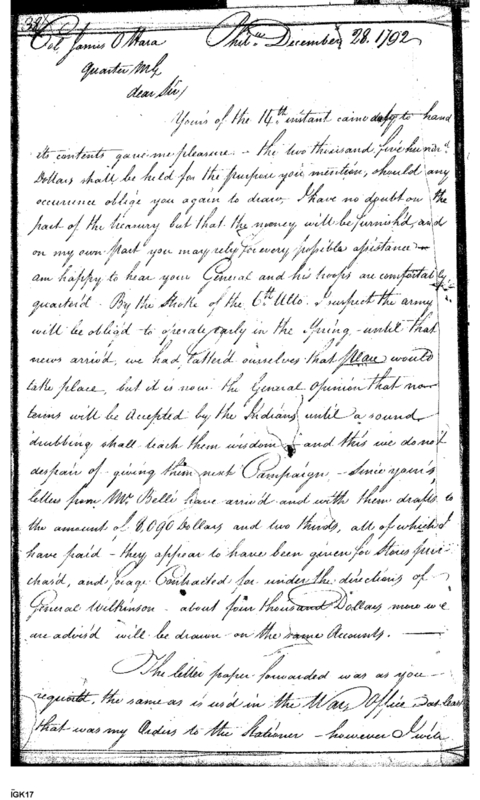 38
Col. James O Hara Phila. December 28. 1792
Quarter M G
dear Sir,
Yours of the 14th instant came duly to hand
its contents gave me pleasure - the two thousand, five hundred
Dollars shall be held for the purpose you mention, should any
occurrence oblige you again to draw. I have no doubt on the
part of the treasury but that the money will be furnish'd, and
on my own part you may rely for every possible assistance - I
am happy to hear your General and his troops are comfortably
quarter'd - By the Stroke of the 6th Ulto. I suspect the army
will be oblig'd to operate early in the Spring - until that
news arriv'd, we had flatter'd ourselves that Peace would
take place, but it is now the General opinion that no
terms will be Accepted by the Indians until a sound
drubbing shall teach them wisdom - and this we do not
despair of giving them next Campaign. - Since your's,
letters from Mr. Belli have arriv'd and with them drafts to
the amount of 8,090 Dollars and two thirds, all of which I
have paid - they appear to have been given for Stores pur-
chas'd, and forage Contracted for under the directions of
General Wilkinson - about four thousand Dollars more we
are advis'd will be drawn on the same Accounts. -
The letter paper forwarded was as you
requested, the same as is us'd in the War Office - at least
that was my Orders to the Stationer - however I will
IGK17